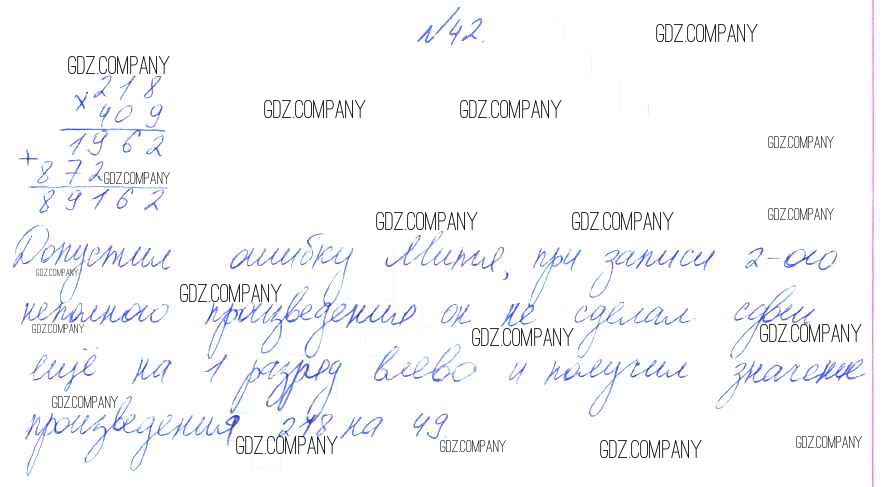 №42.
GDZ.COMPANY
GDZ.COMPANY
218
× 409
GDZ.COMPANY GDZ.COMPANY
1962
GDZ.COMPANY
+ 872
GDZ.COMPANY
89162
GDZ.COMPANY
GDZ.COMPANY GDZ.COMPANY
Допустил ошибку Митя, при записи 2-ого
GDZ.COMPANY
GDZ.COMPANY
неполного произведения он не сделал сдвиг
GDZ.COMPANY GDZ.COMPANY GDZ.COMPANY
ещё на 1 разряд влево и получил значение
GDZ.COMPANY
произведения 218 на 49
GDZ.COMPANY GDZ.COMPANY GDZ.COMPANY GDZ.COMPANY